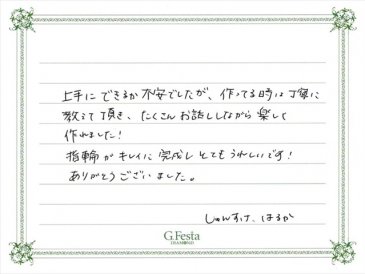 上手にできるか不安でしたが、作ってる時は丁寧に
教えて頂き、たくさんお話ししながら楽しく
作れました!
指輪がキレイに完成しとてもうれしいです!
ありがとうございました。
しゅんすけ、はるか
G.Festa
DIAMOND